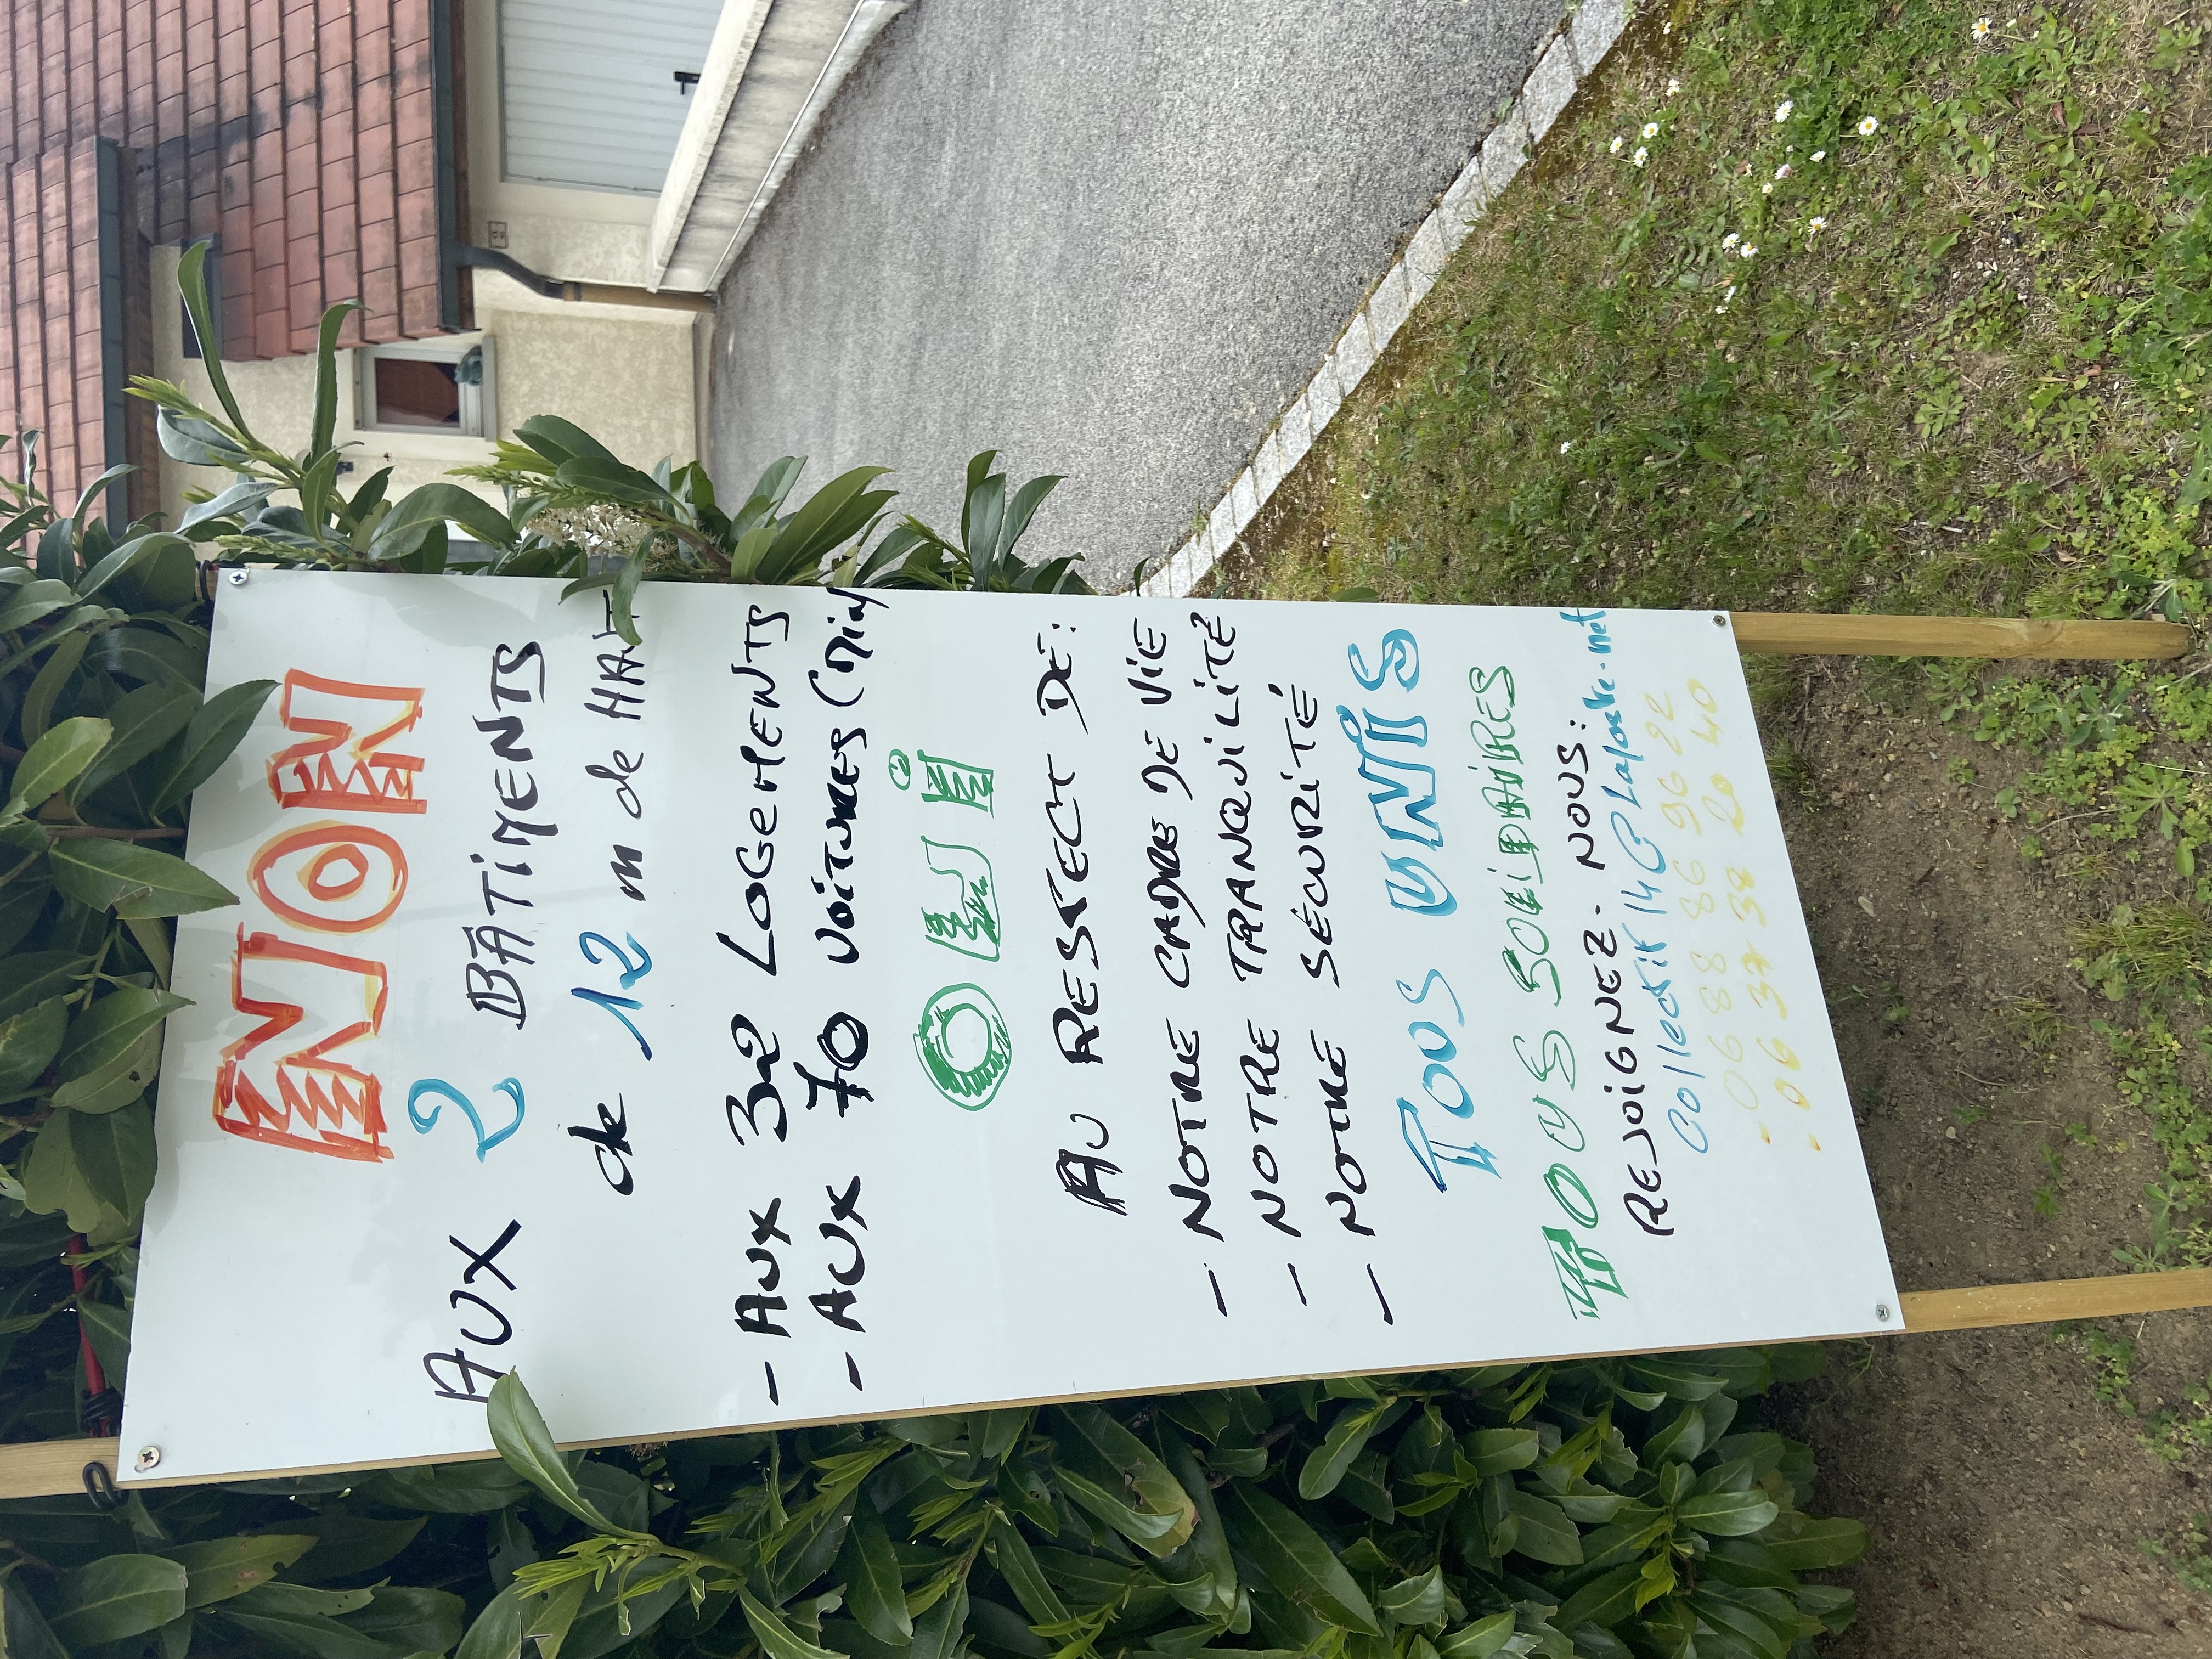 NON
AUX 2 BÂTIMENTS
de 12 m de HAUT
- AUX 32 LOGEMENTS
- AUX 70 VOITURES (Min
OUI
AU RESPECT DE:
- NOTRE CADRE DE VIE
- NOTRE TRANQUILITÉ
- NOTRE SÉCURITÉ
TOUS UNIS
TOUS SOLIDAIRES
REJOIGNEZ-NOUS:
Collectif14@Laposte.net
- 06 88 86 96 22
- 06 37 38 20 40